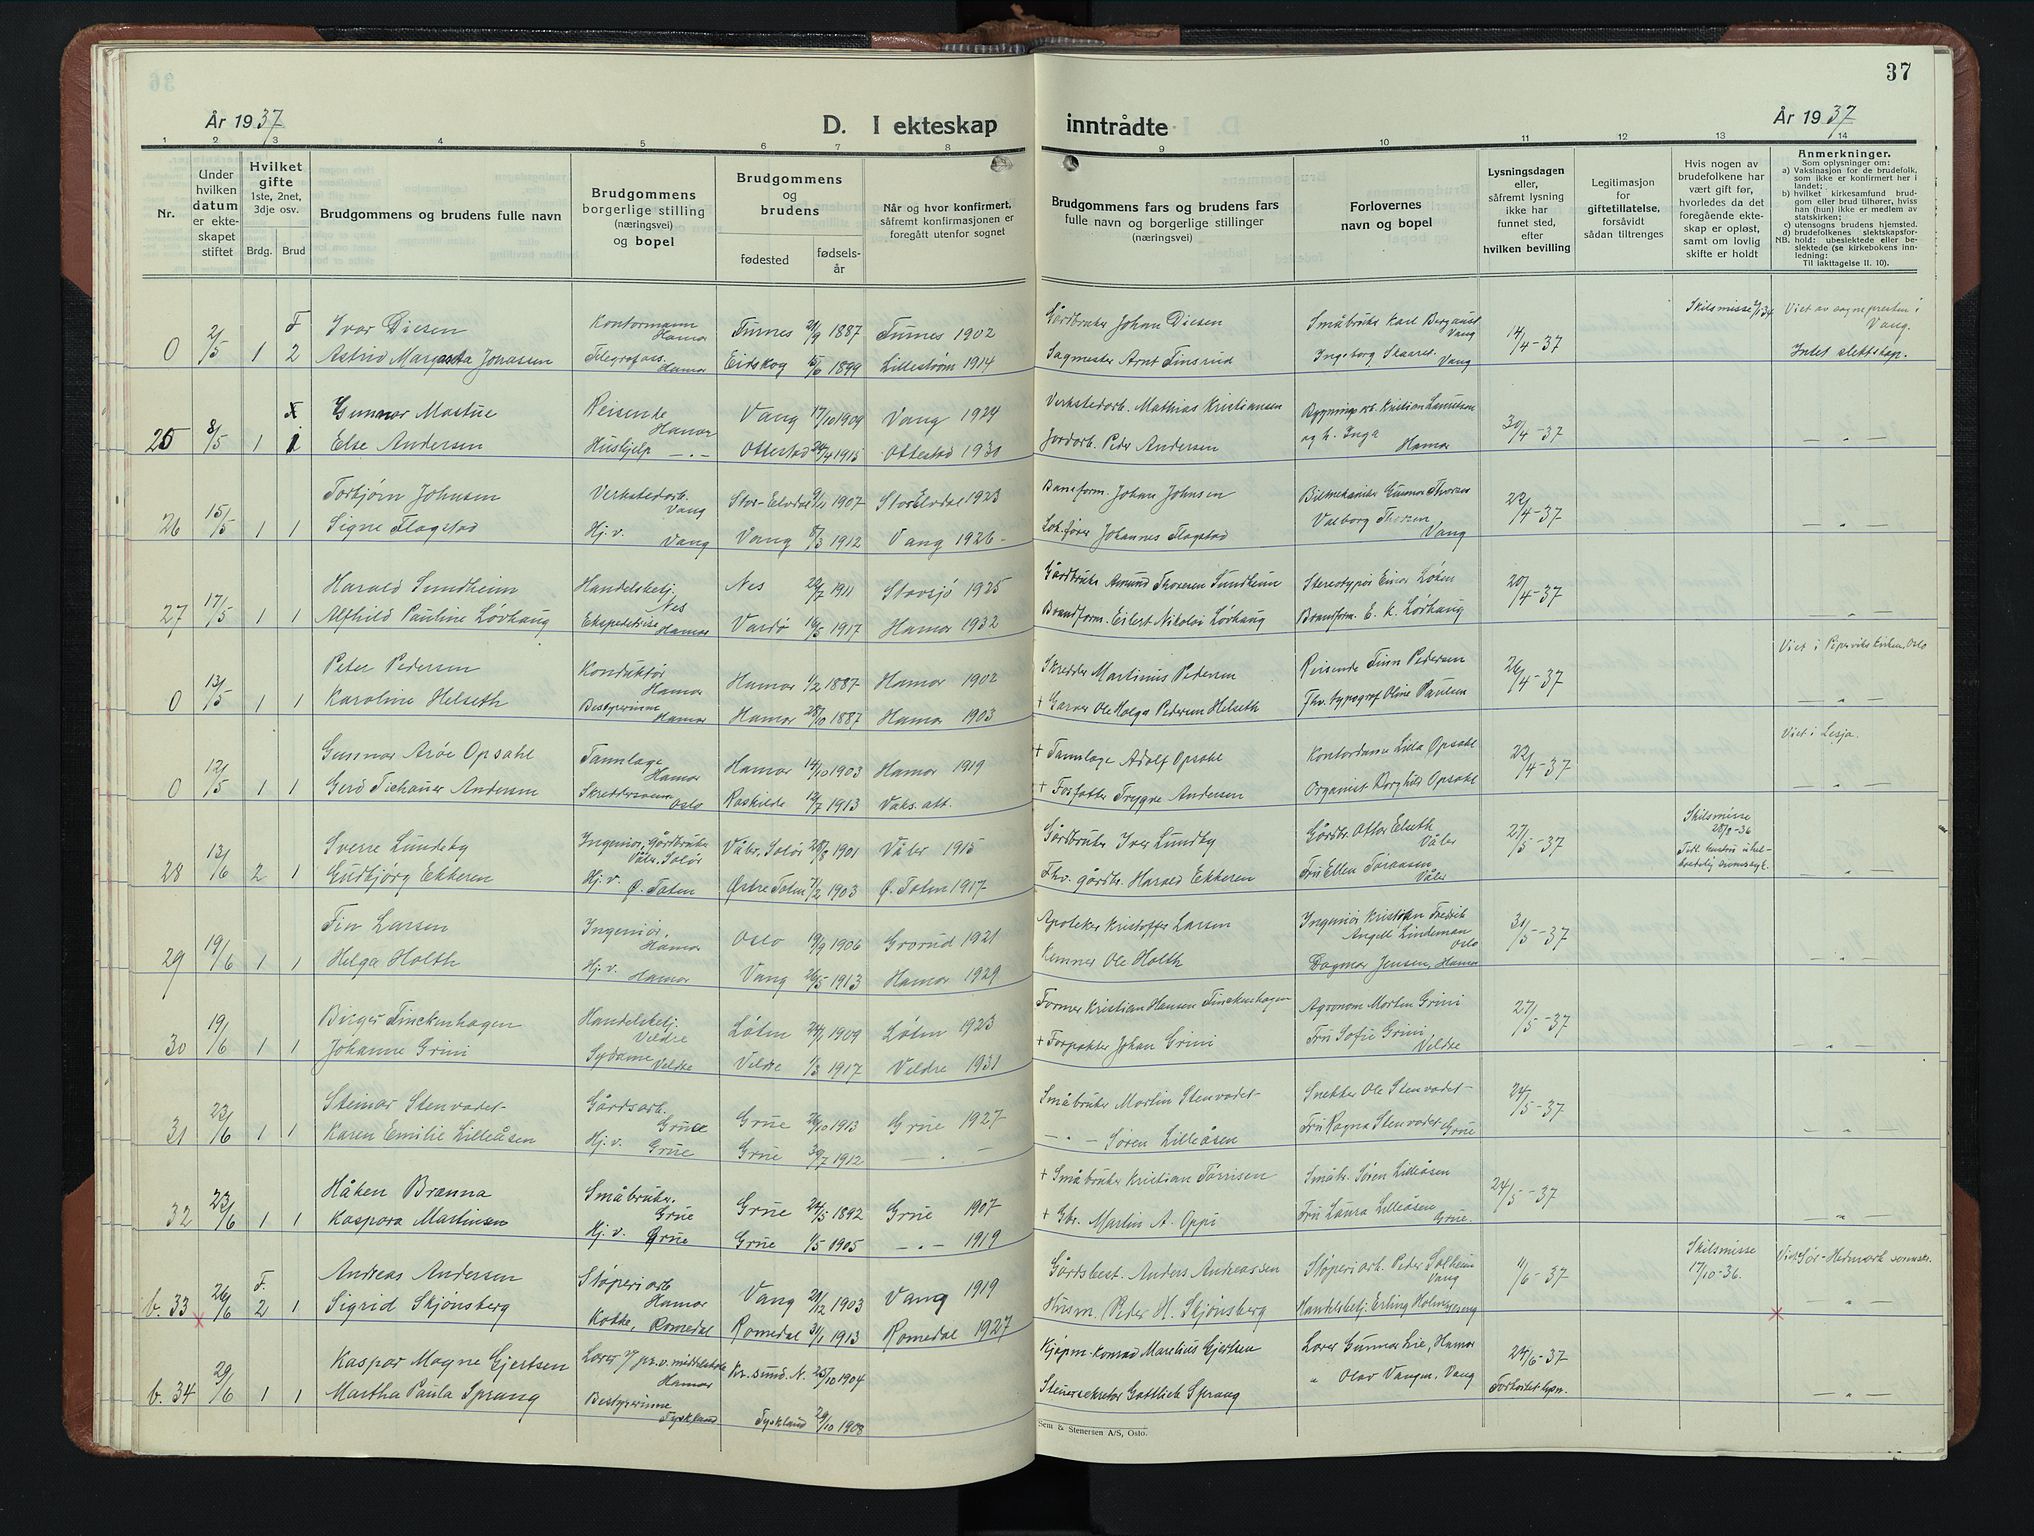 37
År 1937
D. I ekteskap inntrådte
År 1937
1 2 3 4 5 6 7 8 9 10 11 12 13 14
Nr.
Under hvilken datum er ekteskapet stiftet
Hvilket gifte 1ste, 2net, 3dje osv.
Brdg. Brud
Brudgommens og brudens fulle navn
Brudgommens borgerlige stilling (næringsvei) og bopel
Brudgommens og brudens
fødested
fødselsår
Når og hvor konfirmert, såfremt konfirmasjonen er foregått utenfor sognet
Brudgommens fars og brudens fars fulle navn og borgerlige stillinger (næringsvei)
Forlovernes navn og bopel
Lysningsdagen eller, såfremt lysning ikke har funnet sted, efter hvilken bevilling
Legitimasjon for giftetillatelse, forsåvidt sådan tiltrenges
Hvis nogen av brudefolkene har vært gift før, hvorledes da det foregående ekteskap er opløst, samt om lovlig skifte er holdt
Anmerkninger.
Som oplysninger om:
a) Vaksinasjon for de brudefolk, som ikke er konfirmert her i landet;
b) hvilket kirkesamfund brudgom eller brud tilhører, hviss han (hun) ikke er medlem av statskirken;
c) utensogns brudens hjemsted.
d) brudefolkenes slektskapsforhold: ubeslektede eller beslektede (se kirkebokens innledning:
NB.
Til iakttagelse II. 10).
F Ivar Diesen Kontormann Hamar Furnes 21/9 1887 Furnes 1902 Gårdbruker Johan Diesen Småbruker Karl Berg Vang 14/4-37 Skilsmisse Viet av sognepresten i Vang.
0 2/5 1 2 Astrid Margreta Johansen Telegrafass. Hamar Eidskog 1899 Lillestrøm 1914 Sagmester Arnt Finsrud Ingeborg Skaaret Vang Intet slektskap.
Gunnar Mostue Reisende Hamar Vang 17/10 1909 Vang 1924 Verkstedarb. Mathias Kristiansen Bygningsarb. Kristian Lauritsen 30/4-37
25 8/5 1 1 Else Andersen Hushjelp -"- Ottestad 24/4 1915 Ottestad 1930 Jordarb. Peder Andersen og h. Inga Hamar - " -
Torbjørn Johnsen Verkstedarb. Vang Stor-Elvdal 9/11 1907 Stor Elvdal 1923 Baneform. Johan Johnsen Bilmekaniker Gunnar Thorsen 22/4-37
26 15/5 1 1 Signe Flagstad Hj. v. Vang Vang 8/3 1912 Vang 1926 Lok.fører Johannes Flagstad Valborg Thorsen Vang - " -
Harald Sundheim Handelsbetj. Nes Nes 22/7 1911 Stavsjø 1925 Gårdbruker Amund Thoresen Sundheim Stereotypør Einar Løken 20/4-37
27 17/5 1 1 Alfhild Pauline Løvhaug Ekspeditrise Hamar Vardø 16/5 1917 Hamar 1932 Brandform. Eilert Nikolai Løvhaug Brannform. E. K. Løvhaug - " -
Peter Pedersen Konduktør Hamar Hamar 1/2 1887 Hamar 1902 Skredder Martinius Pedersen Reisende Finn Pedersen 26/4-37 Viet i Pipervika Kirken, Oslo
0 13/5 1 1 Karoline Helseth Bestyrerinne Hamar Hamar 28/10 1887 Hamar 1903 + Garver Ole Helga Pedersen Helseth Fhv. typograf Oline Paulsen - " -
Gunnar Aröe Opsahl Tannlege Hamar Hamar 14/10 1903 Hamar 1919 + Tannlege Adolf Opsahl Kontordame Lilla Opsahl 22/4-37 Viet i Lesja.
0 12/5 1 1 Gerd Andersen Oslo Roskilde 12/7 1913 Vaks.att. + Trygve Andersen Organist Borghild Opsahl - " -
Sverre Lundeby Ingeniør, gårdbruker Våler, Solør Våler, Solør 28/8 1901 Våler 1915 Gårdbruker Iver Lundby Gårdbr. Ottar Elseth Våler 27/5-37 Skilsmisse 28/9-36
28 13/6 2 1 Gudbjørg Ekkeren Hj. v. Ø. Toten Østre Toten 7/2 1903 Ø. Toten 1917 Fhv. gårdbr. Harald Ekkeren Fru Ellen Våler - " -
Fin Larsen Ingeniør, Hamar Oslo 19/9 1906 Grorud 1921 Apoteker Kristoffer Larsen Ingeniør Kristian Fredrik Angell Lindeman Oslo 31/5-37
29 19/6 1 1 Helga Holth Hj. v. Hamar Vang 26/5 1913 Hamar 1929 Kemner Ole Holth Dagmar Jensen, Hamar - " -
Birger Finckenhagen Handelsbetj. Veldre Løten 24/1 1909 Løten 1923 Former Kristian Hansen Finckenhagen Agronom Morten Grini 27/5-37
30 19/6 1 1 Johanne Grini Sydame Veldre Veldre 1/3 1917 Veldre 1931 + Forpakter Johan Grini Fru Sofie Grini, Veldre - " -
Steinar Stenvadet Gårdsarb. Grue Grue 26/10 1913 Grue 1927 Småbruker Martin Stenvadet Snekker Ole Stenvadet 24/5-37
31 23/6 1 1 Karen Emilie Lilleåsen Hj. v. Grue Grue 30/7 1912 - " - - " - Søren Lilleåsen Fru Ragna Stenvadet Grue - " -
Håken Brænna Småbruker. Grue Grue 24/5 1892 Grue 1907 + Småbruker Kristian Tørrisen Småbr. Søren Lilleåsen 24/5-37
32 23/6 1 1 Kaspara Martinsen Hj. v. Grue Grue 1/5 1905 - " - 1919 + Gbr. Martin A. Oppi Fru Laura Lilleåsen Grue. - " -
F. Andreas Andersen Støperiarb Hamar Vang 21/12 1903 Vang 1919 Gårdsbest. Anders Andreassen Støperiarb. Peder Solheim Vang 11/6-37 Skilsmisse 17/10-36. Viet Sør-Hedmark
b. 33 26/6 2 1 Sigrid Skjønsberg Kokke, Romedal Romedal 31/1 1913 Romedal 1927 Husm. Peder H. Skjønsberg Handelsbetj. Erling - " -
Kaspar Magne Gjertsen Lærer v/ pr. v. middelskole Hamar Kr.sund. N. 25/10 1904 Kjøpm. Konrad Marelius Gjertsen Lærer Gunnar Lie, Hamar 24/6-37
b. 34 29/6 1 1 Martha Paula Sprang Bestyrerinne Tyskland Tyskland 29/10 1908 Gottlieb Sprang " Olav Vangen, Vang Forkortet lysn. - " -
Sem & Stenersen A/S, Oslo.